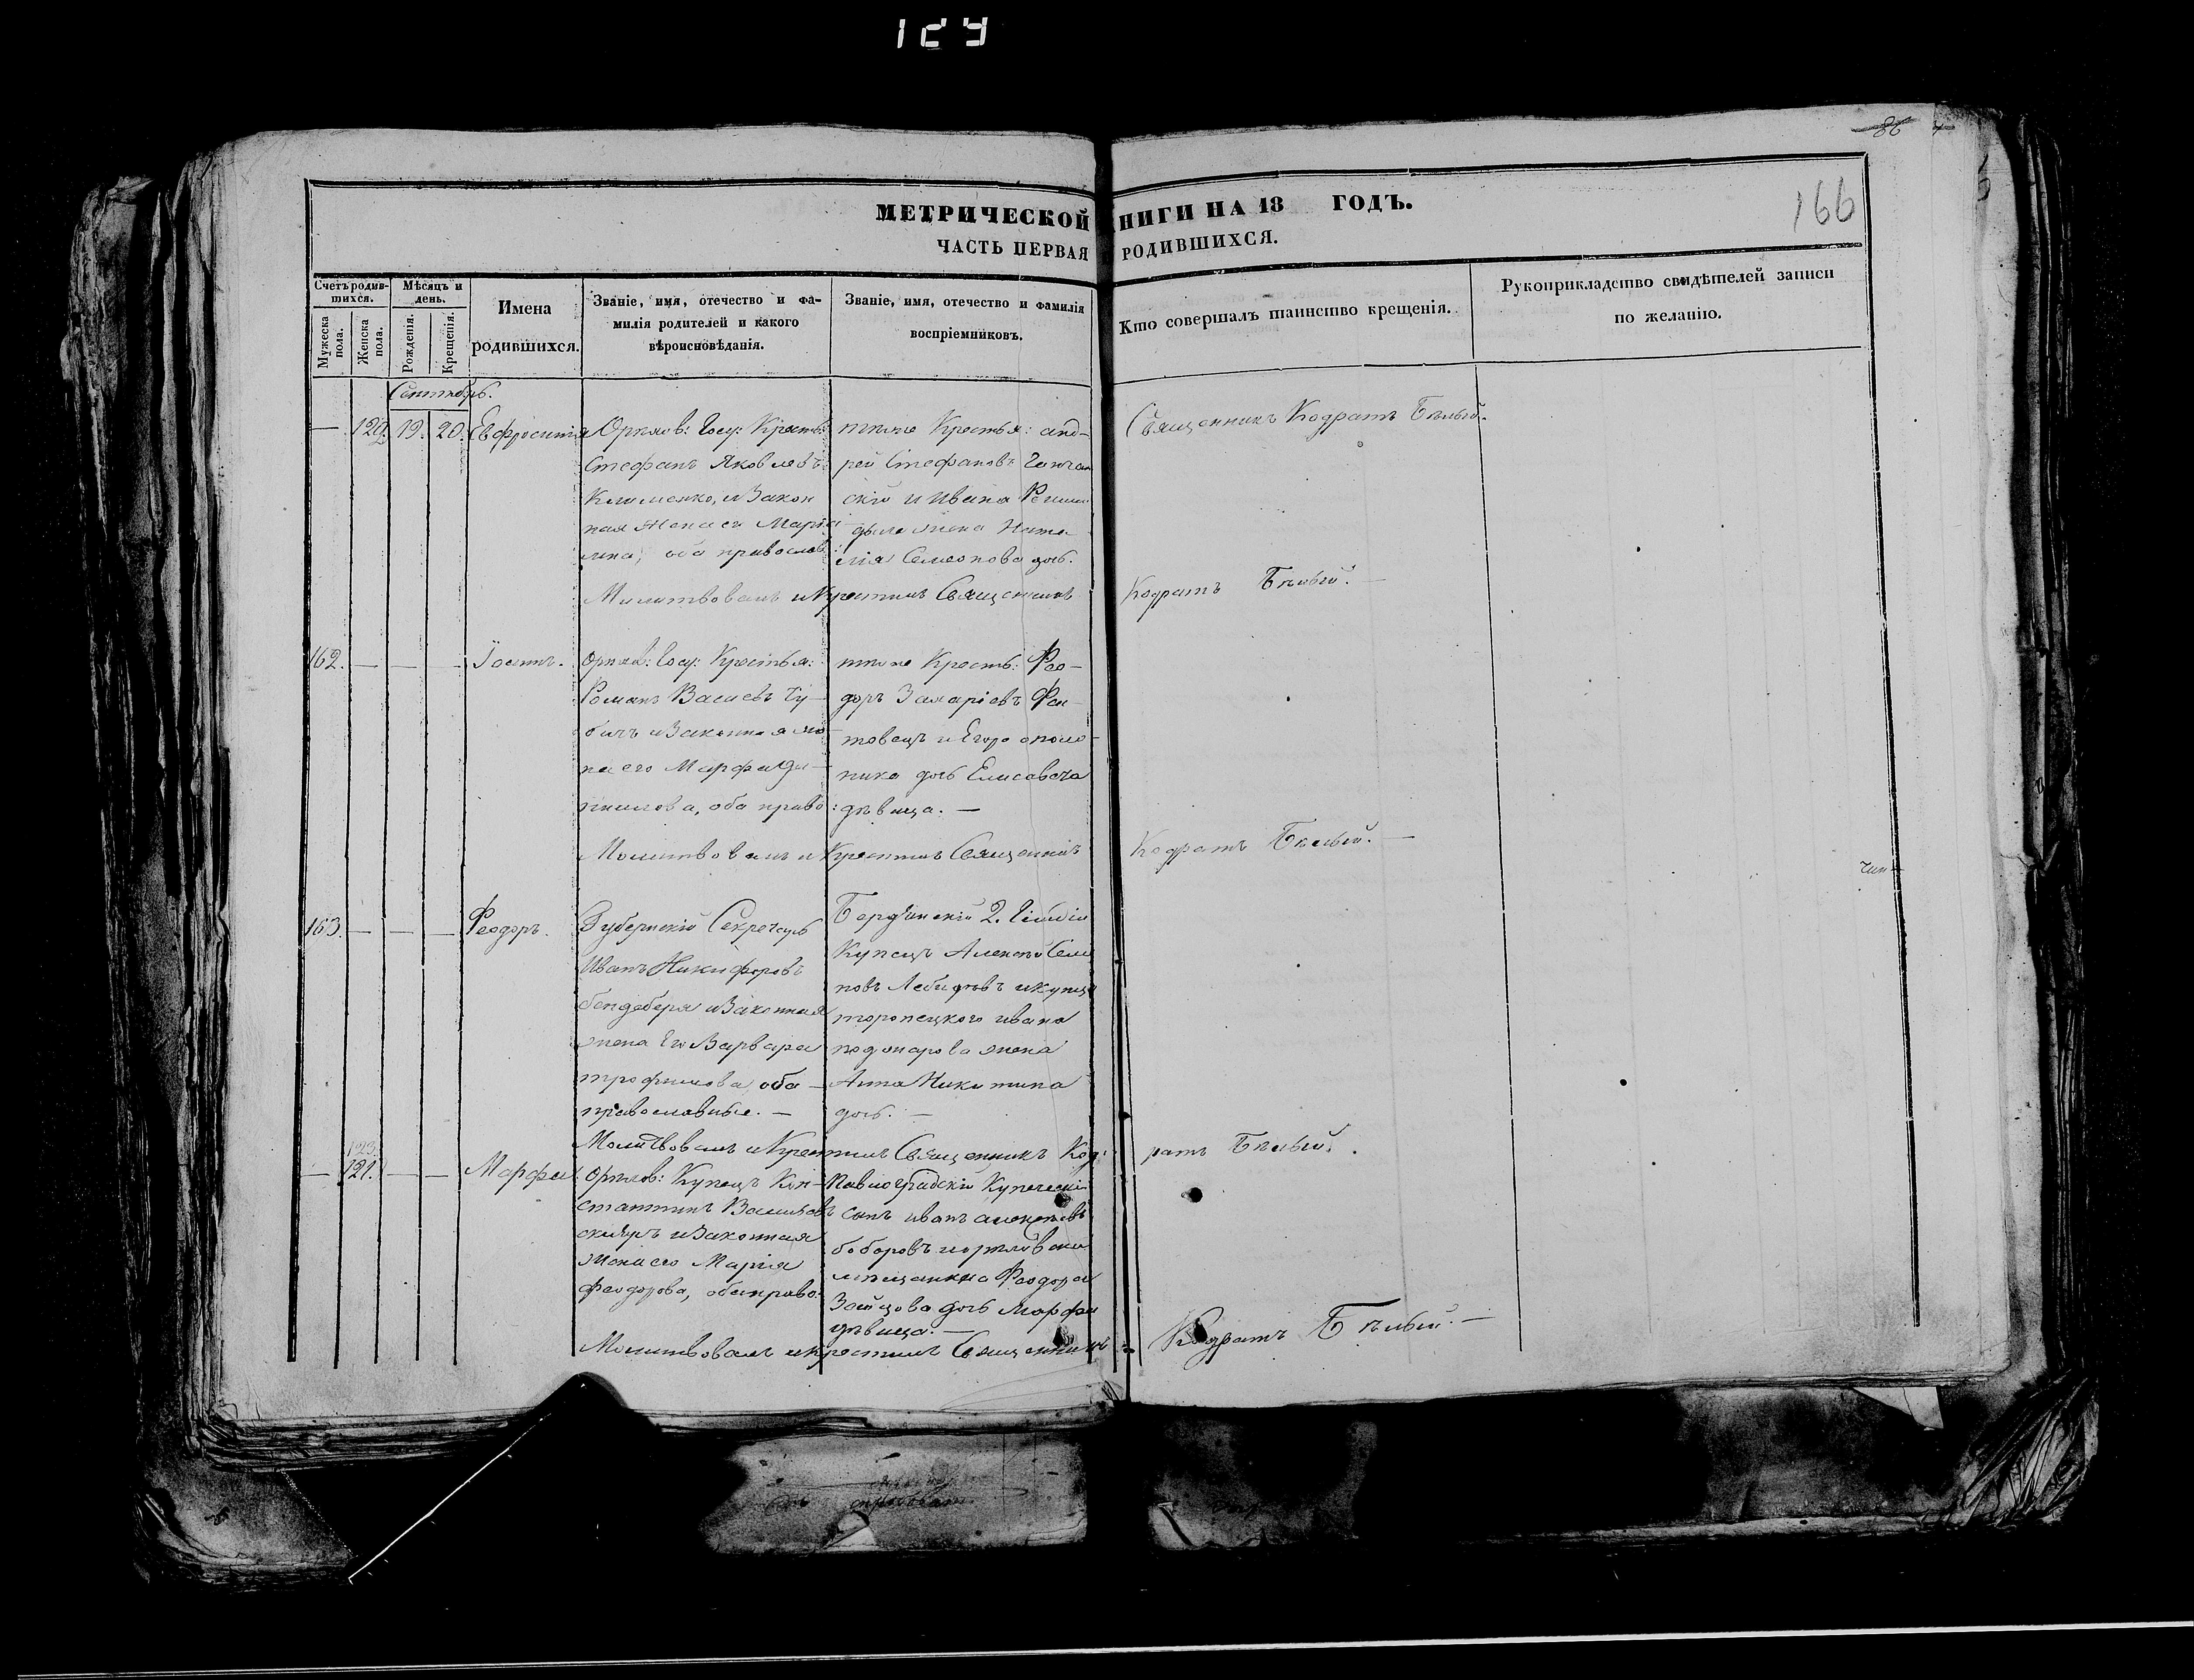 129
86
166
МЕТРИЧЕСКОЙ КНИГИ НА 18 ГОДЪ.
ЧАСТЬ ПЕРВАЯ РОДИВШИХСЯ.
Счетъ родившихся.
Мужеска пола.
Женска пола.
Мѣсяцъ и день.
Рожденія.
Крещенія.
Имена родившихся.
Званіе, имя, отечество и фамилія родителей и какого вѣроисповѣданія.
Званіе, имя, отечество и фамилія воспріемниковъ.
Кто совершалъ таинство крещенія.
Рукоприкладство свидѣтелей записи по желанію.
Сентябрь.
— 120. 19. 20. Евфросинія
Орѣхов: Госу: Крестья:
Стефанъ Яковлевъ
Клименко, и Закон
ная Жена его Марѳа
оба православ:
тѣхже Крестья: анд-
рей Стефановъ
скій и Ивана
жена Ната
лія Семеонова дочь.
Священникъ Кодратъ Бѣлый.
Молитвовалъ и Крестилъ Священникъ
Кодратъ Бѣлый. —
162. — — — Іоаннъ.
Орѣхов: Госу: Крестья:
Романъ Васильевъ Чу-
бичъ и Законная же
на его Марфа Да-
ниилова, оба право:
тѣхже Кресть: Фео-
доръ Захаріевъ
и Егора
дочь Елисавета
дѣвица. —
Молитвовалъ и Крестилъ Священникъ
Кодратъ Бѣлый. —
163. — — — Феодоръ.
Губернскій Секретарь
Иванъ Никифоровъ
Бендеберя и Законная
жена Его Варвара
трофимова, оба
православные. —
Бердянскій 2. Гильдіи
Купецъ Алексѣй Семе
новъ и купца
торопецкого ивана
жена
Анна Никитина
дочь. —
Молитвовалъ и Крестилъ Священникъ Код:
ратъ Бѣлый.
123.
— 121. — — Марфа
Орѣхов: Купецъ Кон-
стантинъ Васильевъ
и Законная
Жена его Марія
феодорова, оба право:
Павлоградскій Купеческій
сынъ иванъ алексѣевъ
бобаровъ и орѣховская
мѣщанина Феодора
Зайцова дочь Марфа
дѣвица. —
Молитвовалъ и крестилъ Священникъ
Кодратъ Бѣлый. —